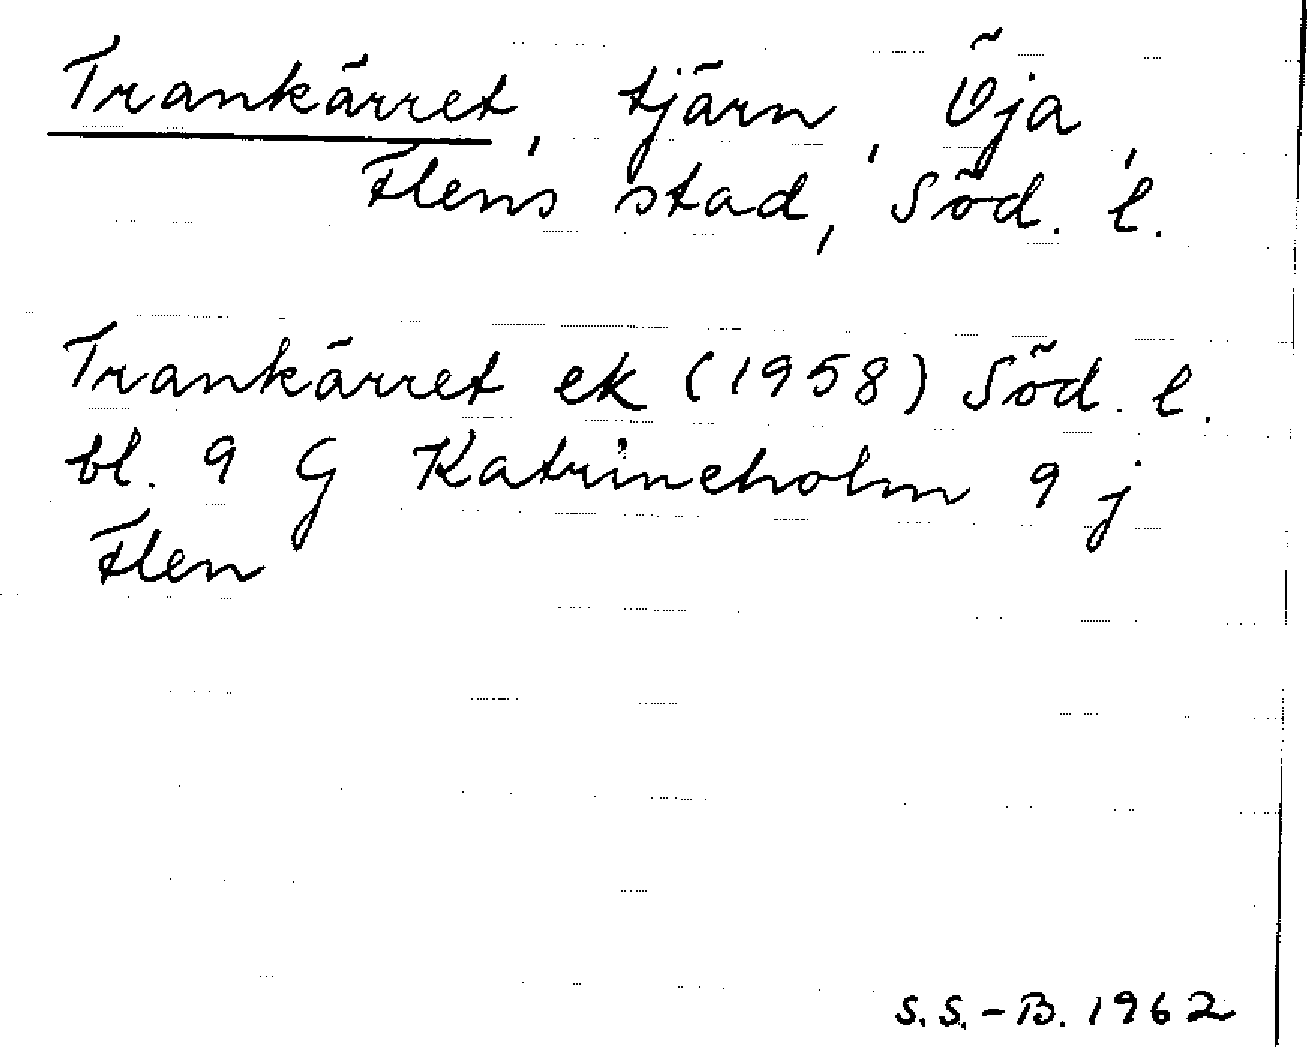 Trankärret, tjärn, Öja,
Flens stad, Söd. l.
Trankärret ek (1958) Söd. l.
bl. 9 G Katrineholm 9 j
Flen
S.S.-B. 1962